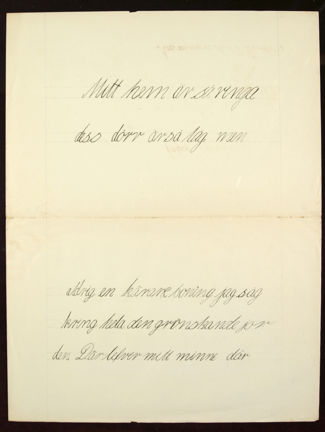 Mitt hem är så ringa
dess dörr är så låg men
Aldrig en kärare boning jag såg
kring hela den grönskande jor
den Där lefver mitt minne där